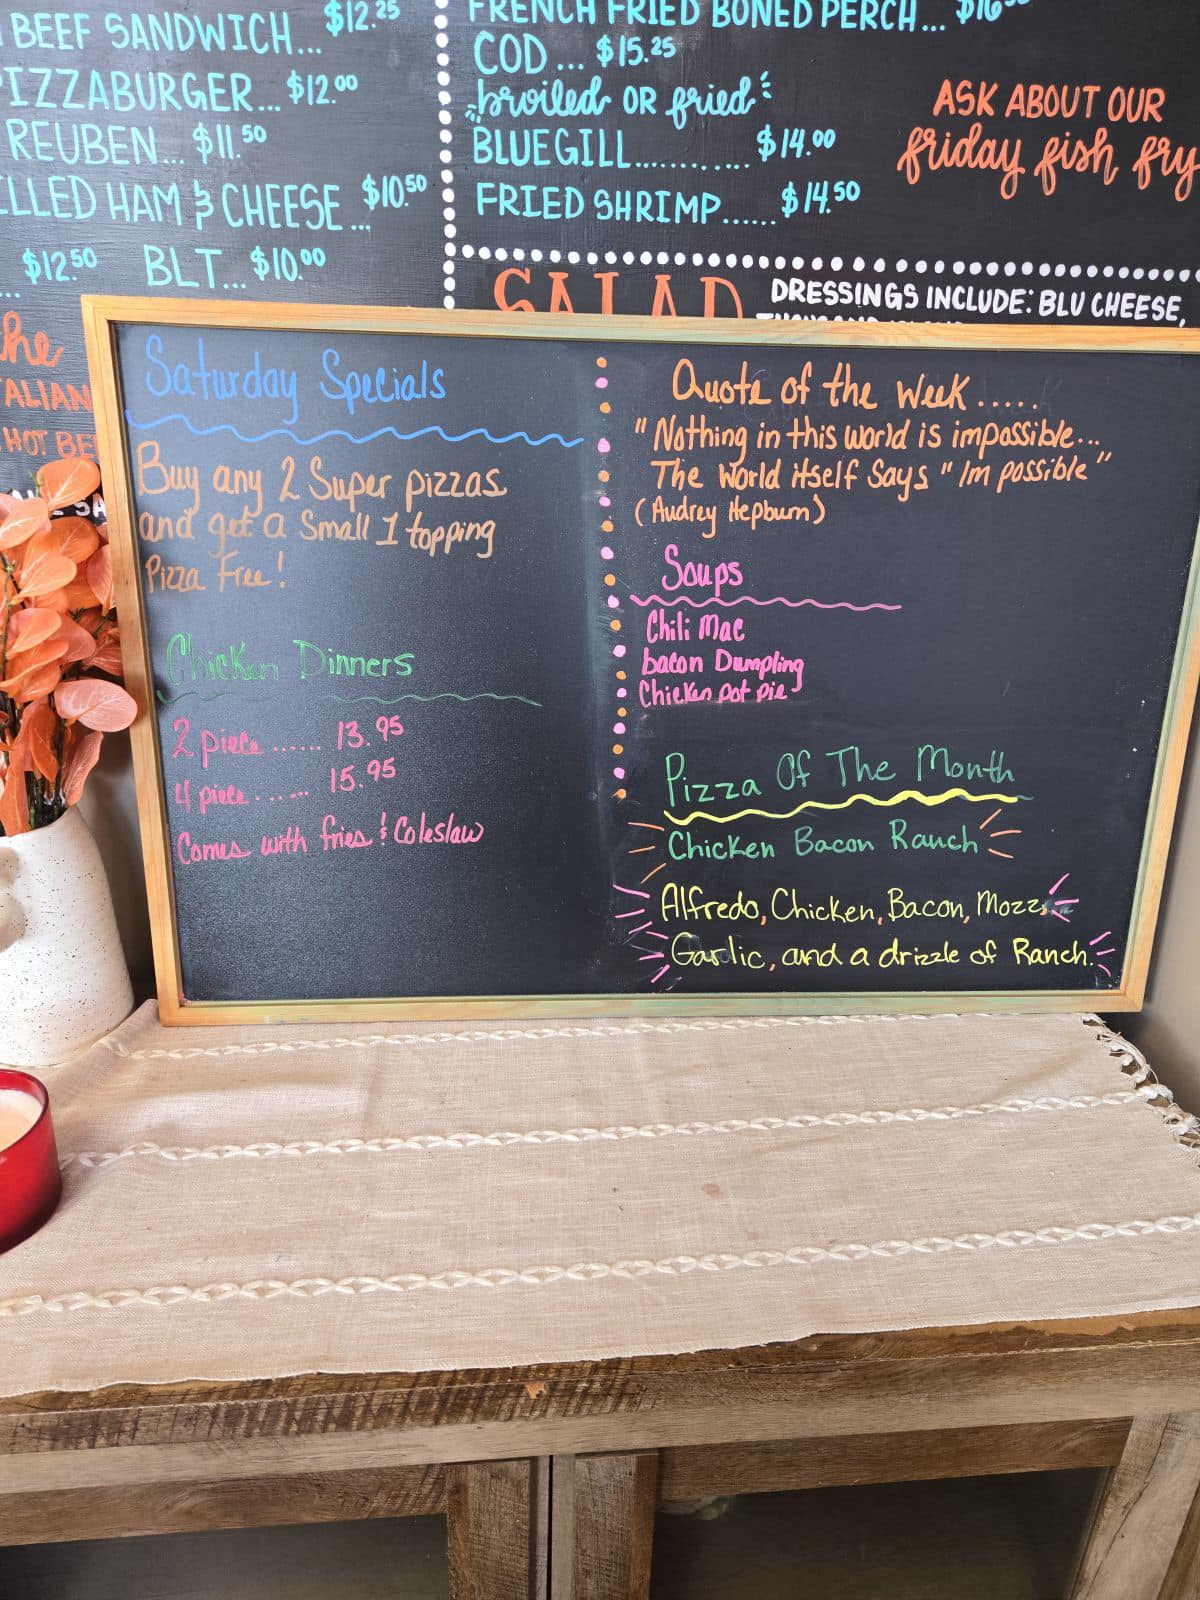 BEEF SANDWICH... $12.25
PIZZABURGER... $12.00
REUBEN... $11.50
HAM & CHEESE... $10.50
$12.50 BLT... $10.00
FRENCH FRIED BONED PERCH...
COD... $15.25
broiled OR fried
BLUEGILL........... $14.00
FRIED SHRIMP...... $14.50
ASK ABOUT OUR
friday fish fry
SALAD
DRESSINGS INCLUDE: BLU CHEESE,
Saturday Specials
Buy any 2 Super pizzas
and get a Small 1 topping
Pizza Free!
Chicken Dinners
2 piece ...... 13.95
4 piece ...... 15.95
Comes with fries & Coleslaw
Quote of the Week .....
"Nothing in this world is impossible...
The World itself Says "Im possible"
(Audrey Hepburn)
Soups
Chili Mac
bacon Dumpling
Chicken pot pie
Pizza Of The Month
Chicken Bacon Ranch
Alfredo, Chicken, Bacon, Mozz,
Garlic, and a drizzle of Ranch.